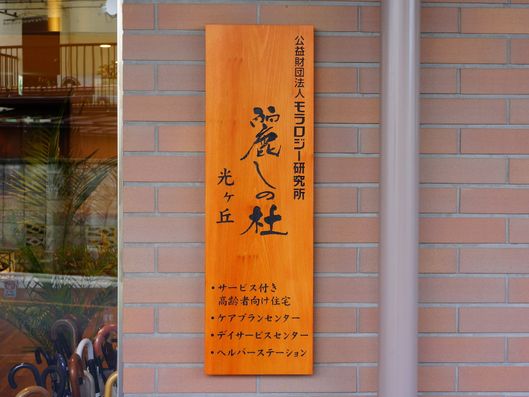 公益財団法人 モラロジー研究所
麗しの杜
光ヶ丘
・サービス付き
高齢者向け住宅
・ケアプランセンター
・デイサービスセンター
・ヘルパーステーション